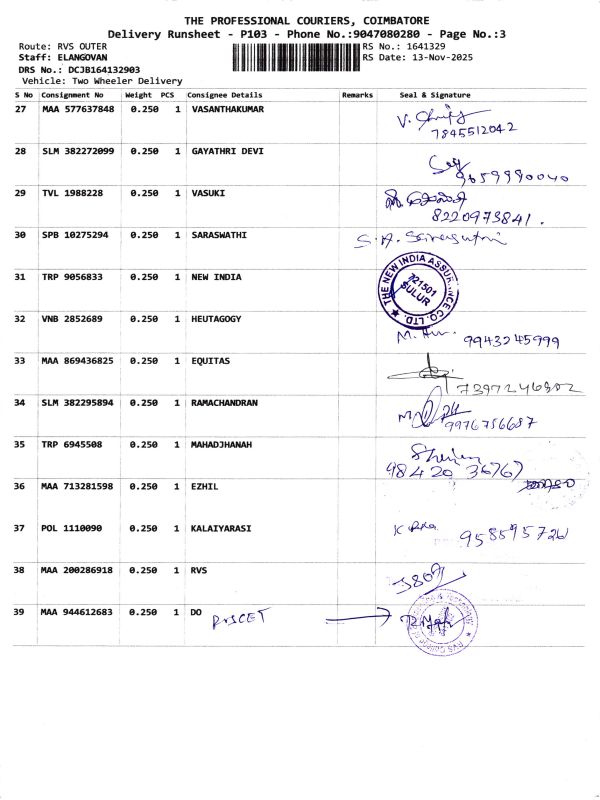 THE PROFESSIONAL COURIERS, COIMBATORE
Delivery Runsheet - P103 - Phone No.:9047080280 - Page No.:3
Route: RVS OUTER RS No.: 1641329
Staff: ELANGOVAN RS Date: 13-Nov-2025
DRS No.: DCJB164132903
Vehicle: Two Wheeler Delivery
S No Consignment No Weight PCS Consignee Details Remarks Seal & Signature
27 MAA 577637848 0.250 1 VASANTHAKUMAR
7845512042
28 SLM 382272099 0.250 1 GAYATHRI DEVI
9659990040
29 TVL 1988228 0.250 1 VASUKI
8220973841.
30 SPB 10275294 0.250 1 SARASWATHI
31 TRP 9056833 0.250 1 NEW INDIA
THE NEW INDIA ASSURANCE CO. LTD.
721501
SULUR
32 VNB 2852689 0.250 1 HEUTAGOGY
9943245999
33 MAA 869436825 0.250 1 EQUITAS
7397246802
34 SLM 382295894 0.250 1 RAMACHANDRAN
9976756687
35 TRP 6945508 0.250 1 MAHADJHANAH
98420 36767
36 MAA 713281598 0.250 1 EZHIL
37 POL 1110090 0.250 1 KALAIYARASI
9585957261
38 MAA 200286918 0.250 1 RVS
39 MAA 944612683 0.250 1 DO RVSCET